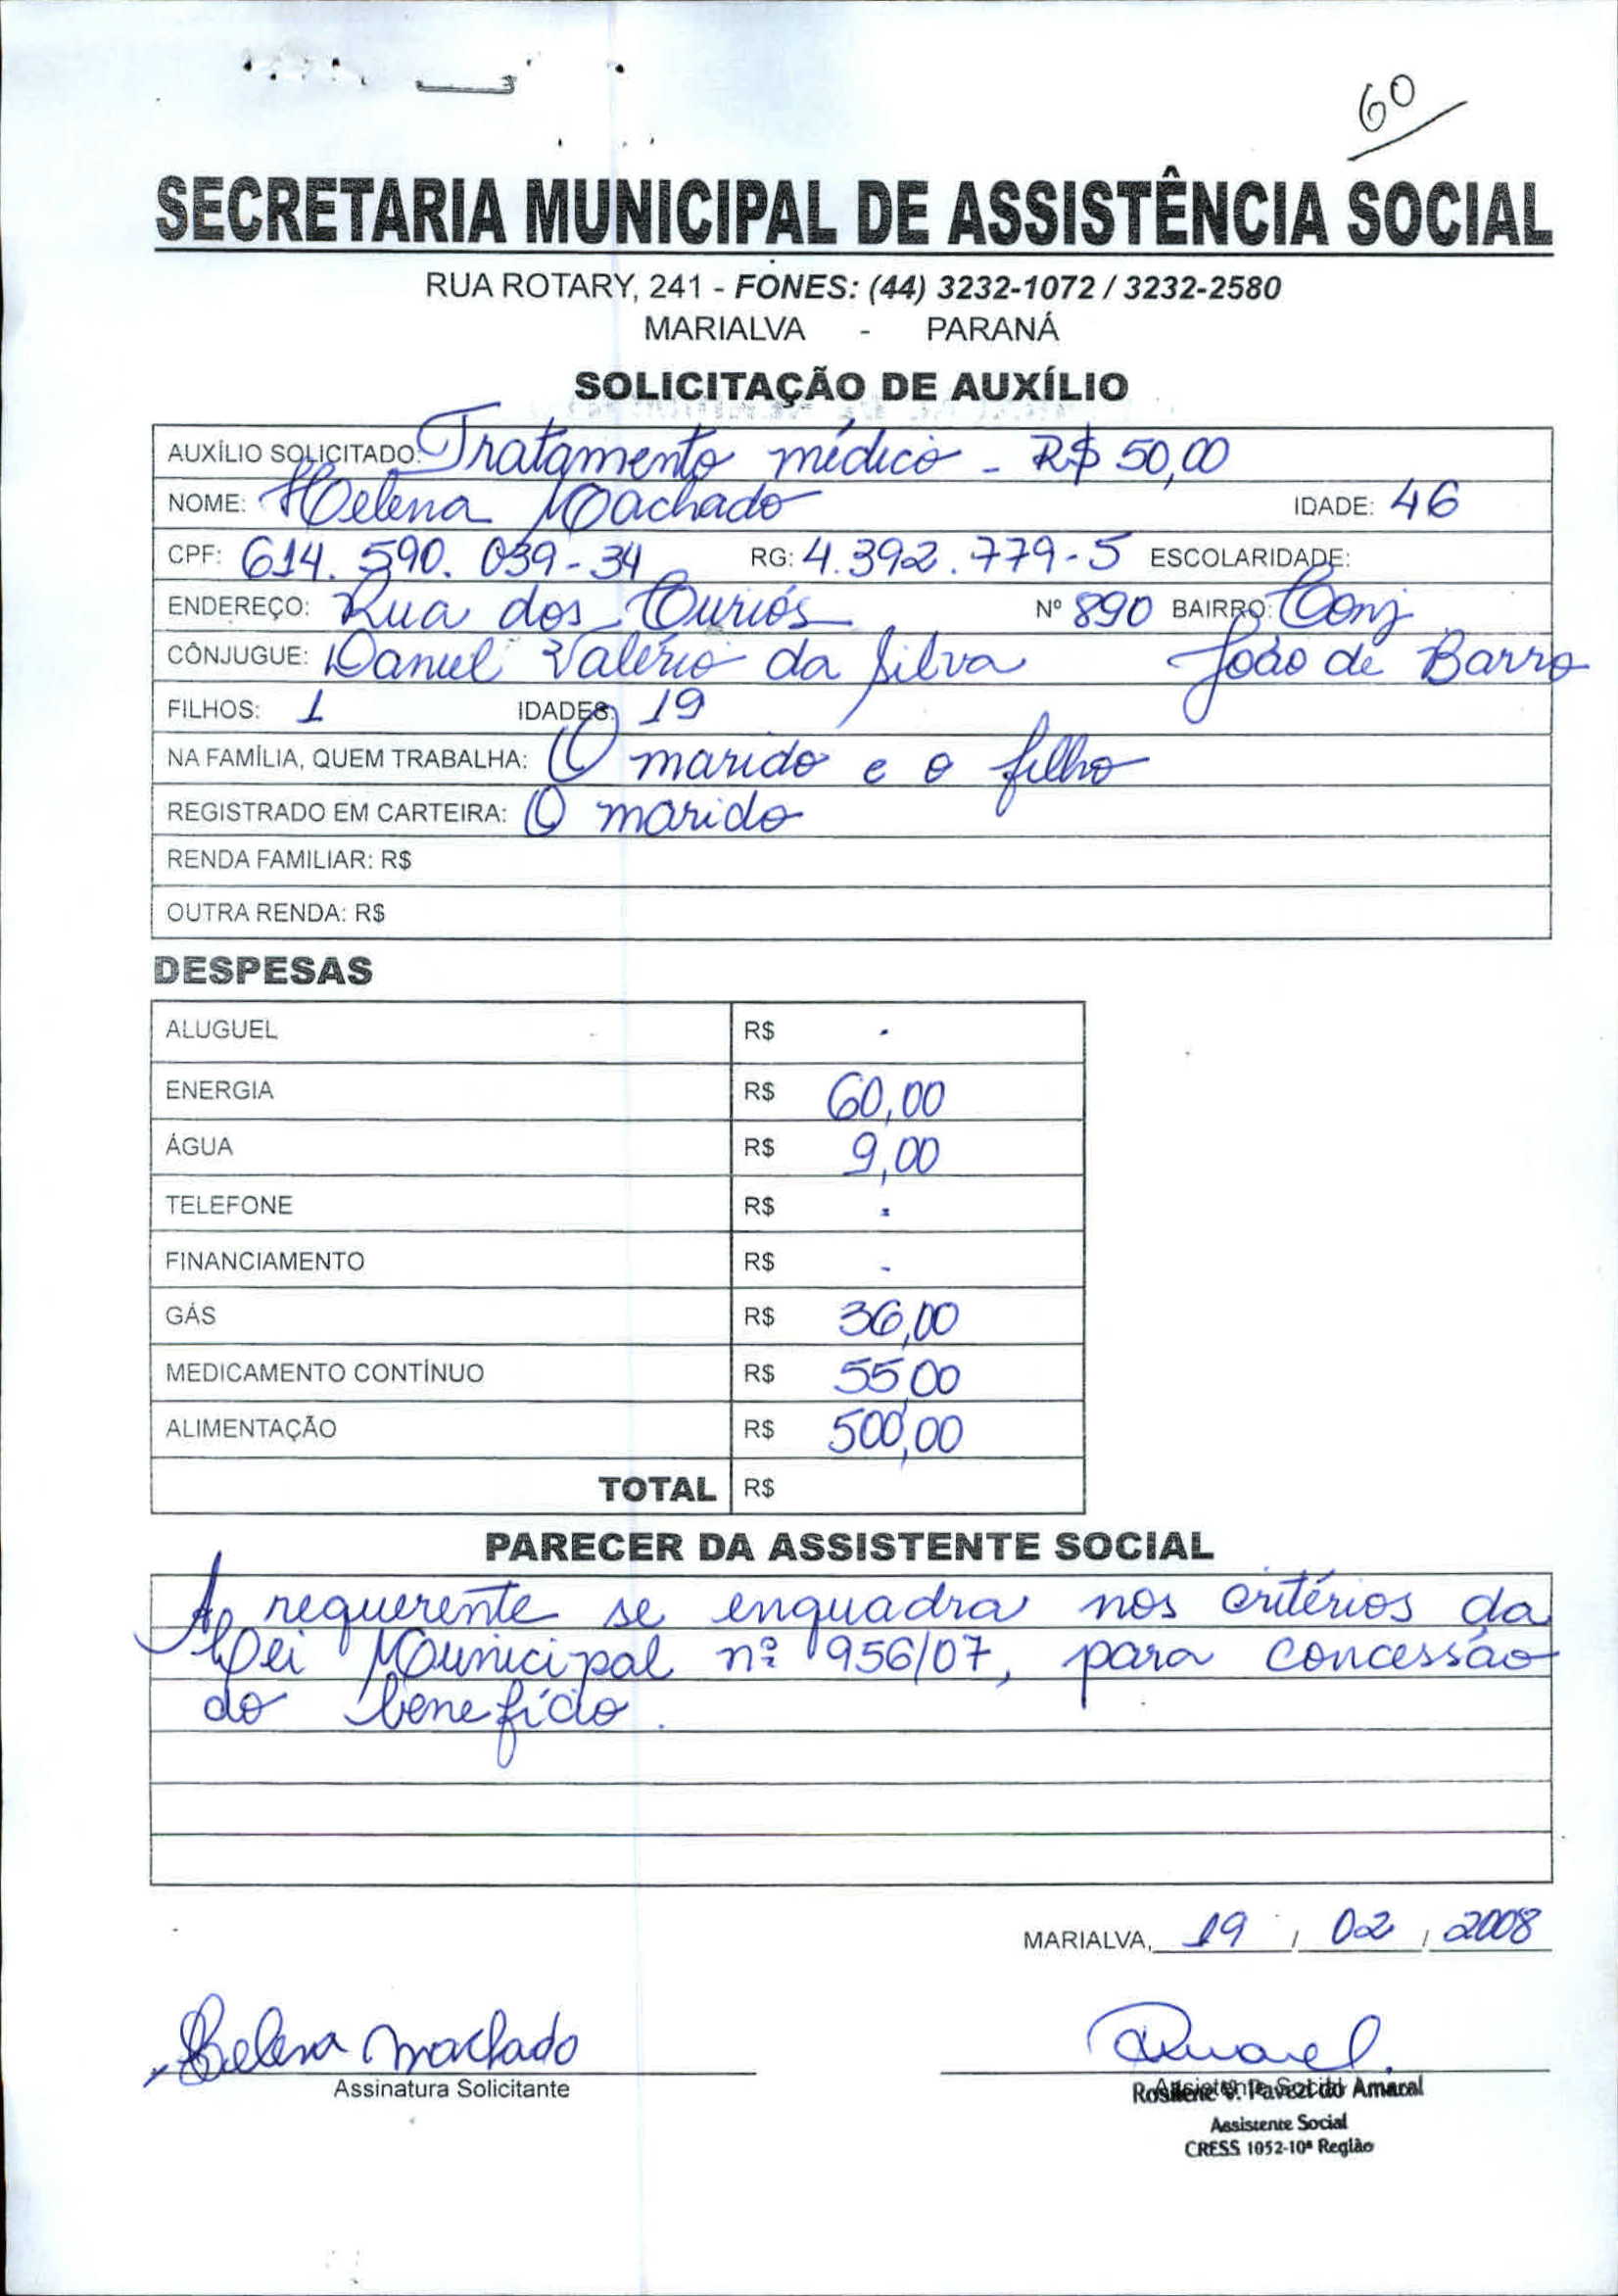 60
SECRETARIA MUNICIPAL DE ASSISTÊNCIA SOCIAL
RUA ROTARY, 241 - FONES: (44) 3232-1072 / 3232-2580
MARIALVA - PARANÁ
SOLICITAÇÃO DE AUXÍLIO
AUXÍLIO SOLICITADO: Tratamento médico - R$ 50,00
NOME: Helena Machado IDADE: 46
CPF: 614.590.039-34 RG: 4.392.779-5 ESCOLARIDADE:
ENDEREÇO: Rua dos Curiós Nº 890 BAIRRO: Conj
CÔNJUGUE: Daniel Valério da Silva João de Barro
FILHOS: 1 IDADES: 19
NA FAMÍLIA, QUEM TRABALHA: O marido e o filho
REGISTRADO EM CARTEIRA: O marido
RENDA FAMILIAR: R$
OUTRA RENDA: R$
DESPESAS
ALUGUEL R$ -
ENERGIA R$ 60,00
ÁGUA R$ 9,00
TELEFONE R$ -
FINANCIAMENTO R$ -
GÁS R$ 36,00
MEDICAMENTO CONTÍNUO R$ 55,00
ALIMENTAÇÃO R$ 500,00
TOTAL R$
PARECER DA ASSISTENTE SOCIAL
A requerente se enquadra nos critérios da
Lei Municipal nº 956/07, para concessão
do benefício.
MARIALVA, 19 / 02 / 2008
Helena Machado
Assinatura Solicitante
Assistente Social
do Amaral
Assistente Social
CRESS 1052-10ª Região